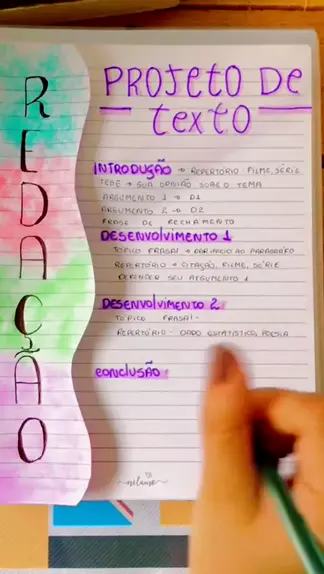 REDAÇÃO
PROJETO DE
TEXTO
INTRODUÇÃO → REPERTÓRIO: FILME, SÉRIE
TESE → SUA OPINIÃO SOBRE O TEMA
ARGUMENTO 1 → D1
ARGUMENTO 2 → D2
FRASE DE FECHAMENTO
DESENVOLVIMENTO 1
TÓPICO FRASAL → DAR INÍCIO AO PARÁGRAFO
REPERTÓRIO → CITAÇÃO, FILME, SÉRIE
DEFENDER SEU ARGUMENTO 1
DESENVOLVIMENTO 2
TÓPICO FRASAL -
REPERTÓRIO - DADO ESTATÍSTICO, POESIA
CONCLUSÃO